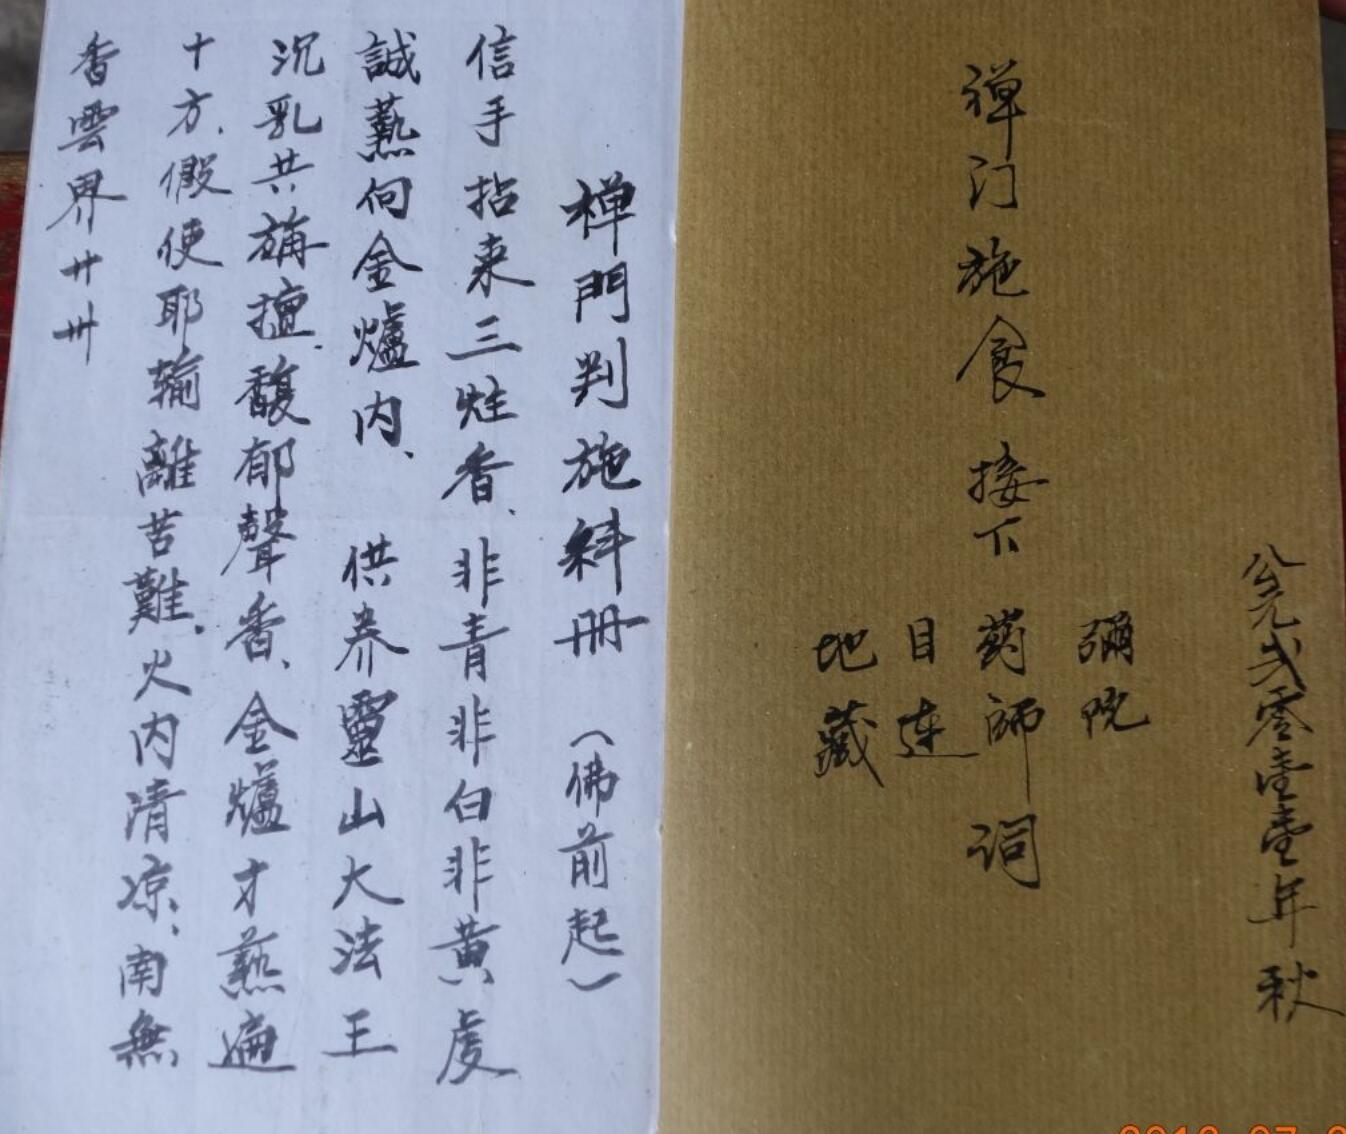 公元弍零壹壹年秋
彌陀
禅门施食接下葯師词
目連
地藏
禅門判施斜册（佛前起）
信手拈来三炷香、非青非白非黄虔
誠爇向金爐内、供养靈山大法王
沉乳共旃檀、馥郁聲香、金爐才爇遍
十方、假使耶輸離苦難、火内清凉、南無
香雲界廾卅